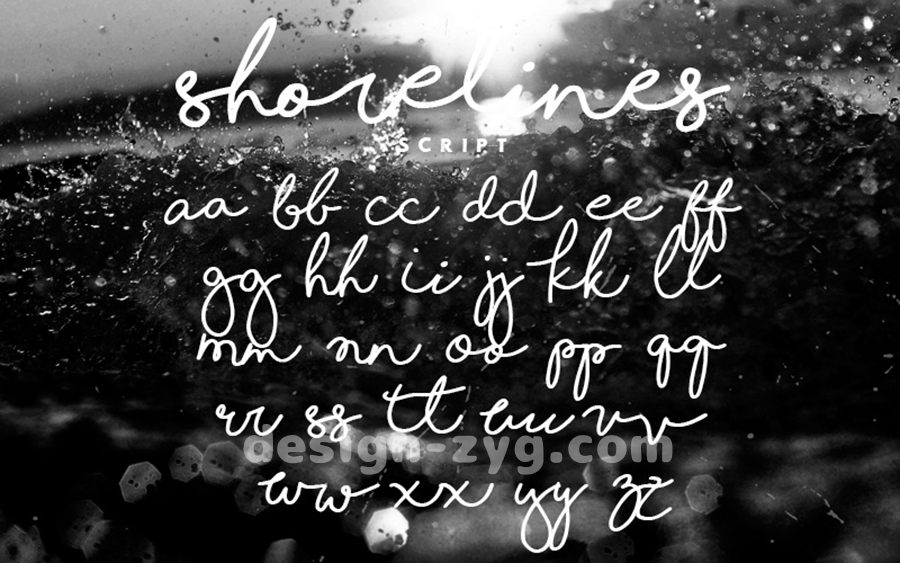 shorelines
SCRIPT
aa bb cc dd ee ff
gg hh ii jj kk ll
mm nn oo pp qq
rr ss tt uu vv
design-zyg.com
ww xx yy zz